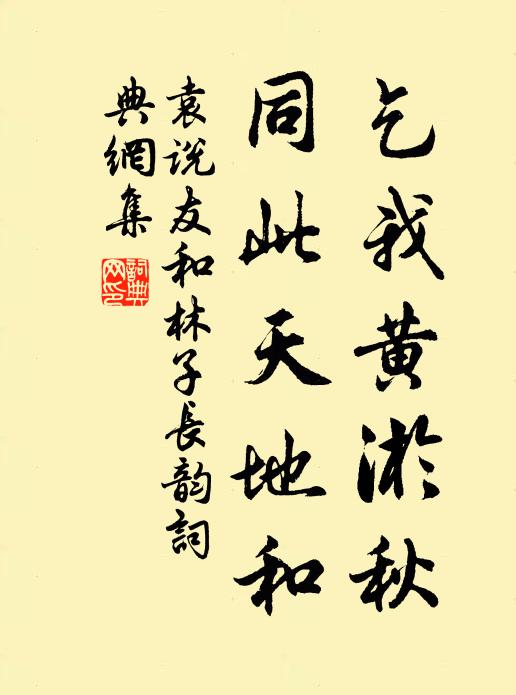 乞我黄淤秋
同此天地和
袁说友和林子長韵詞
典網集
詞典
网印